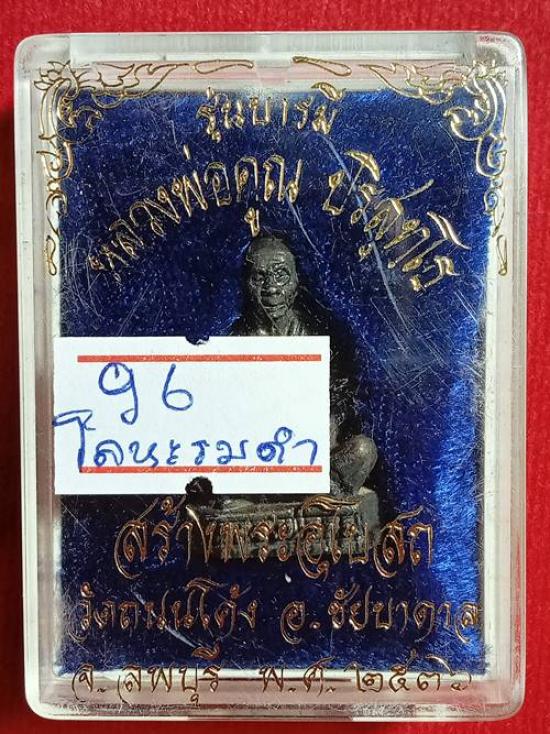 รุ่นบารมี
หลวงพ่อคูณ ปริสุทฺโธ
96
โลหะรมดำ
สร้างพระอุโบสถ
วัดถนนโค้ง อ.ชัยบาดาล
จ.ลพบุรี พ.ศ.๒๕๓๖